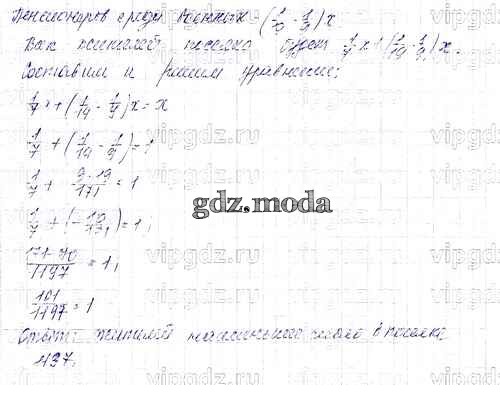 Пенсионеров среди военных - (1/19 - 1/9)x
Вак жителей поселка будет 1/7 x + (1/19 - 1/9)x.
Составим и решим уравнение:
1/7 + (1/19 - 1/9)x = x
1/7 + (1/19 - 1/9) = 1
1/7 + 9-19/171 = 1
1/7 + (-10/171) = 1,
171-70/1197 = 1,
101/1197 = 1
Ответ: жителей в поселке
1137.
vipgdz.ru
gdz.moda